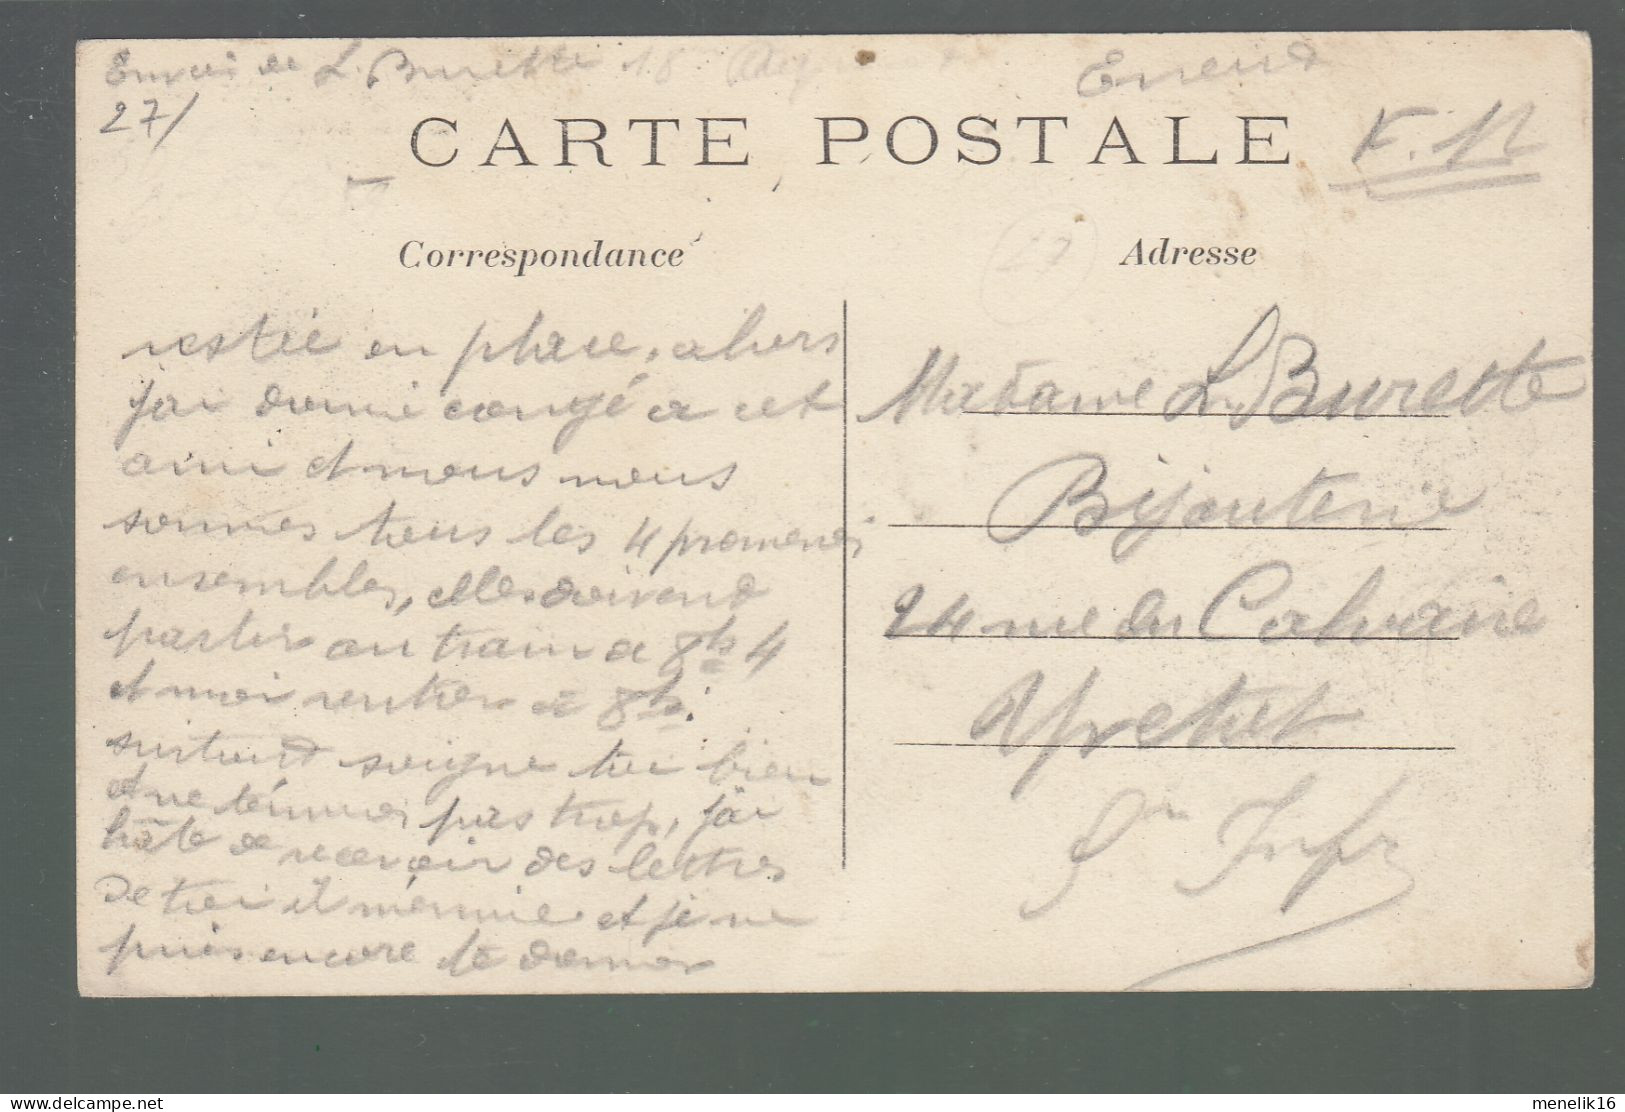 Envoi de L. Burette 18
27/
CARTE POSTALE
F. 12
Correspondance
Adresse
27
restée en place, alhors
j'ai donné congé a cet
ami et nous nous
sommes tous les 4 promenés
ensembles, elles doivent
partir au train a 8h 4
et moi rentrer a 8h.
surtout soigne toi bien
et ne t'ennui pas trop, j'ai
hâte de recevoir des lettres
de toi il m'ennuie et je ne
puis encore te donner
Madame L. Burette
Bijouterie
24 rue du Calvaire
Yvetot
S. Infre
menelik16